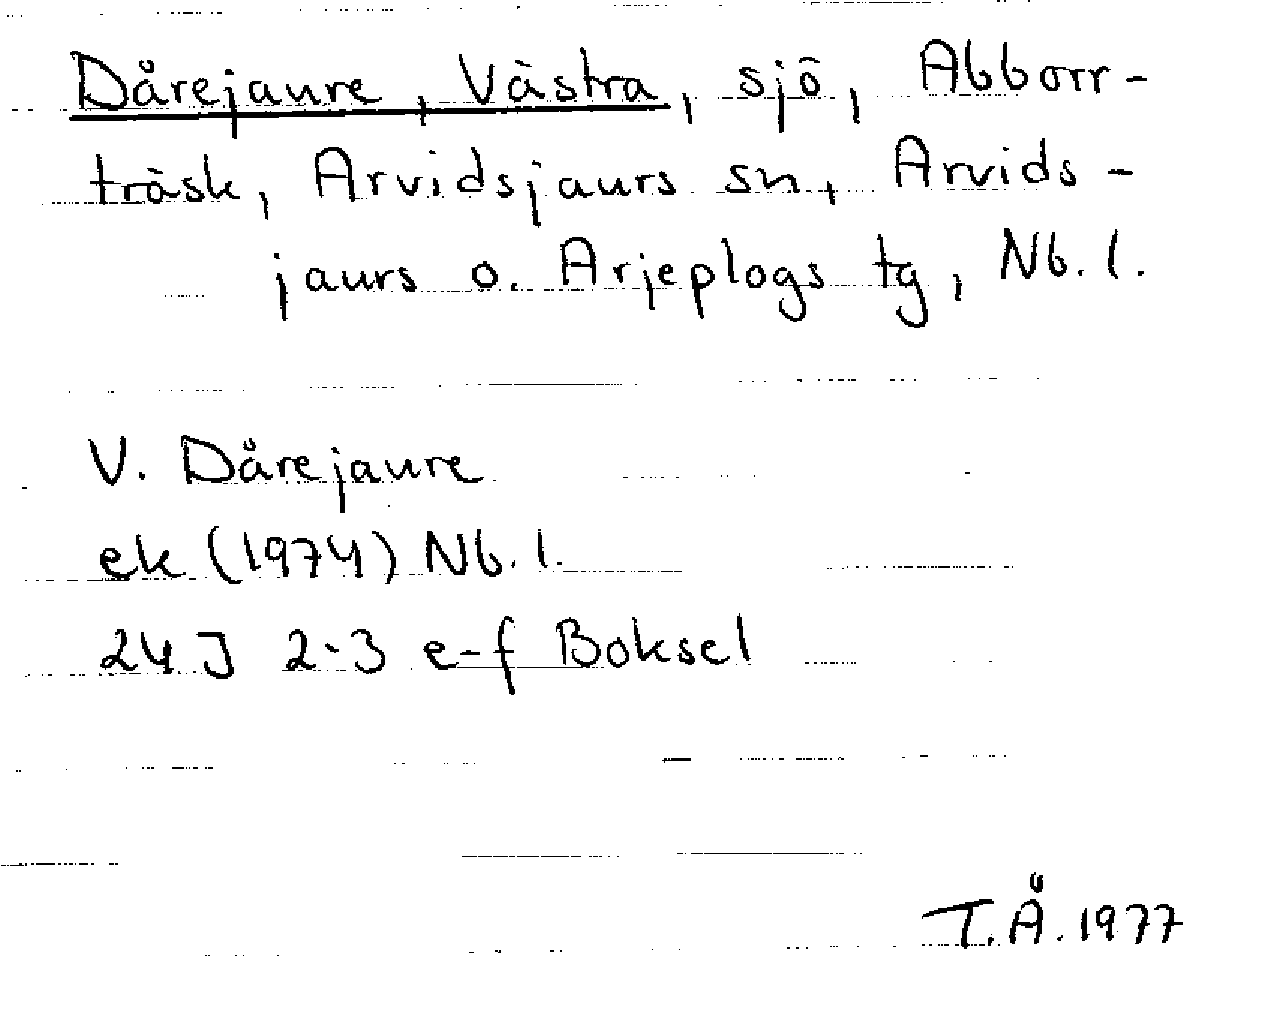 Dårejaure, Västra, sjö, Abborr-
träsk, Arvidsjaurs sn, Arvids-
jaurs o. Arjeplogs tg, Nb. l.
V. Dårejaure
ek (1974) Nb. l.
24J 2-3 e-f Boksel
T.Å. 1977